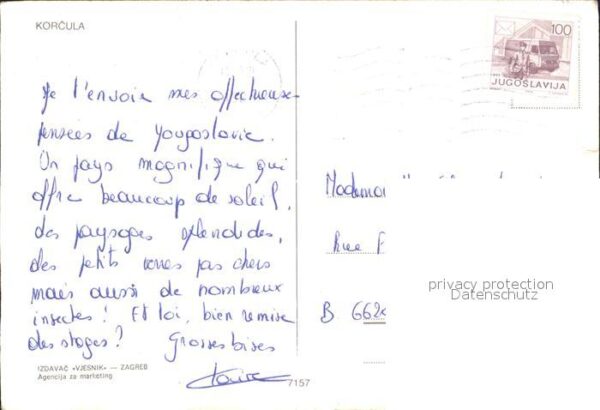 KORČULA
100
JUGOSLAVIJA
Je t'envoie mes affectueuses
pensées de Yougoslavie.
Un pays magnifique qui
offre beaucoup de soleil,
des paysages splendides,
des petits verres pas chers
mais aussi de nombreux
insectes ! Et toi, bien remise
des stages ? Grosses bises
Rue
B 662
privacy protection
Datenschutz
IZDAVAČ «VJESNIK» — ZAGREB
Agencija za marketing
7157